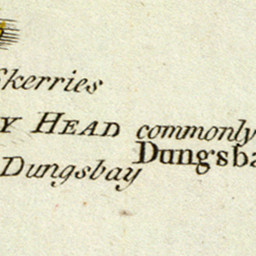 Skerries
Y HEAD commonly
Dungsba
Dungsbay